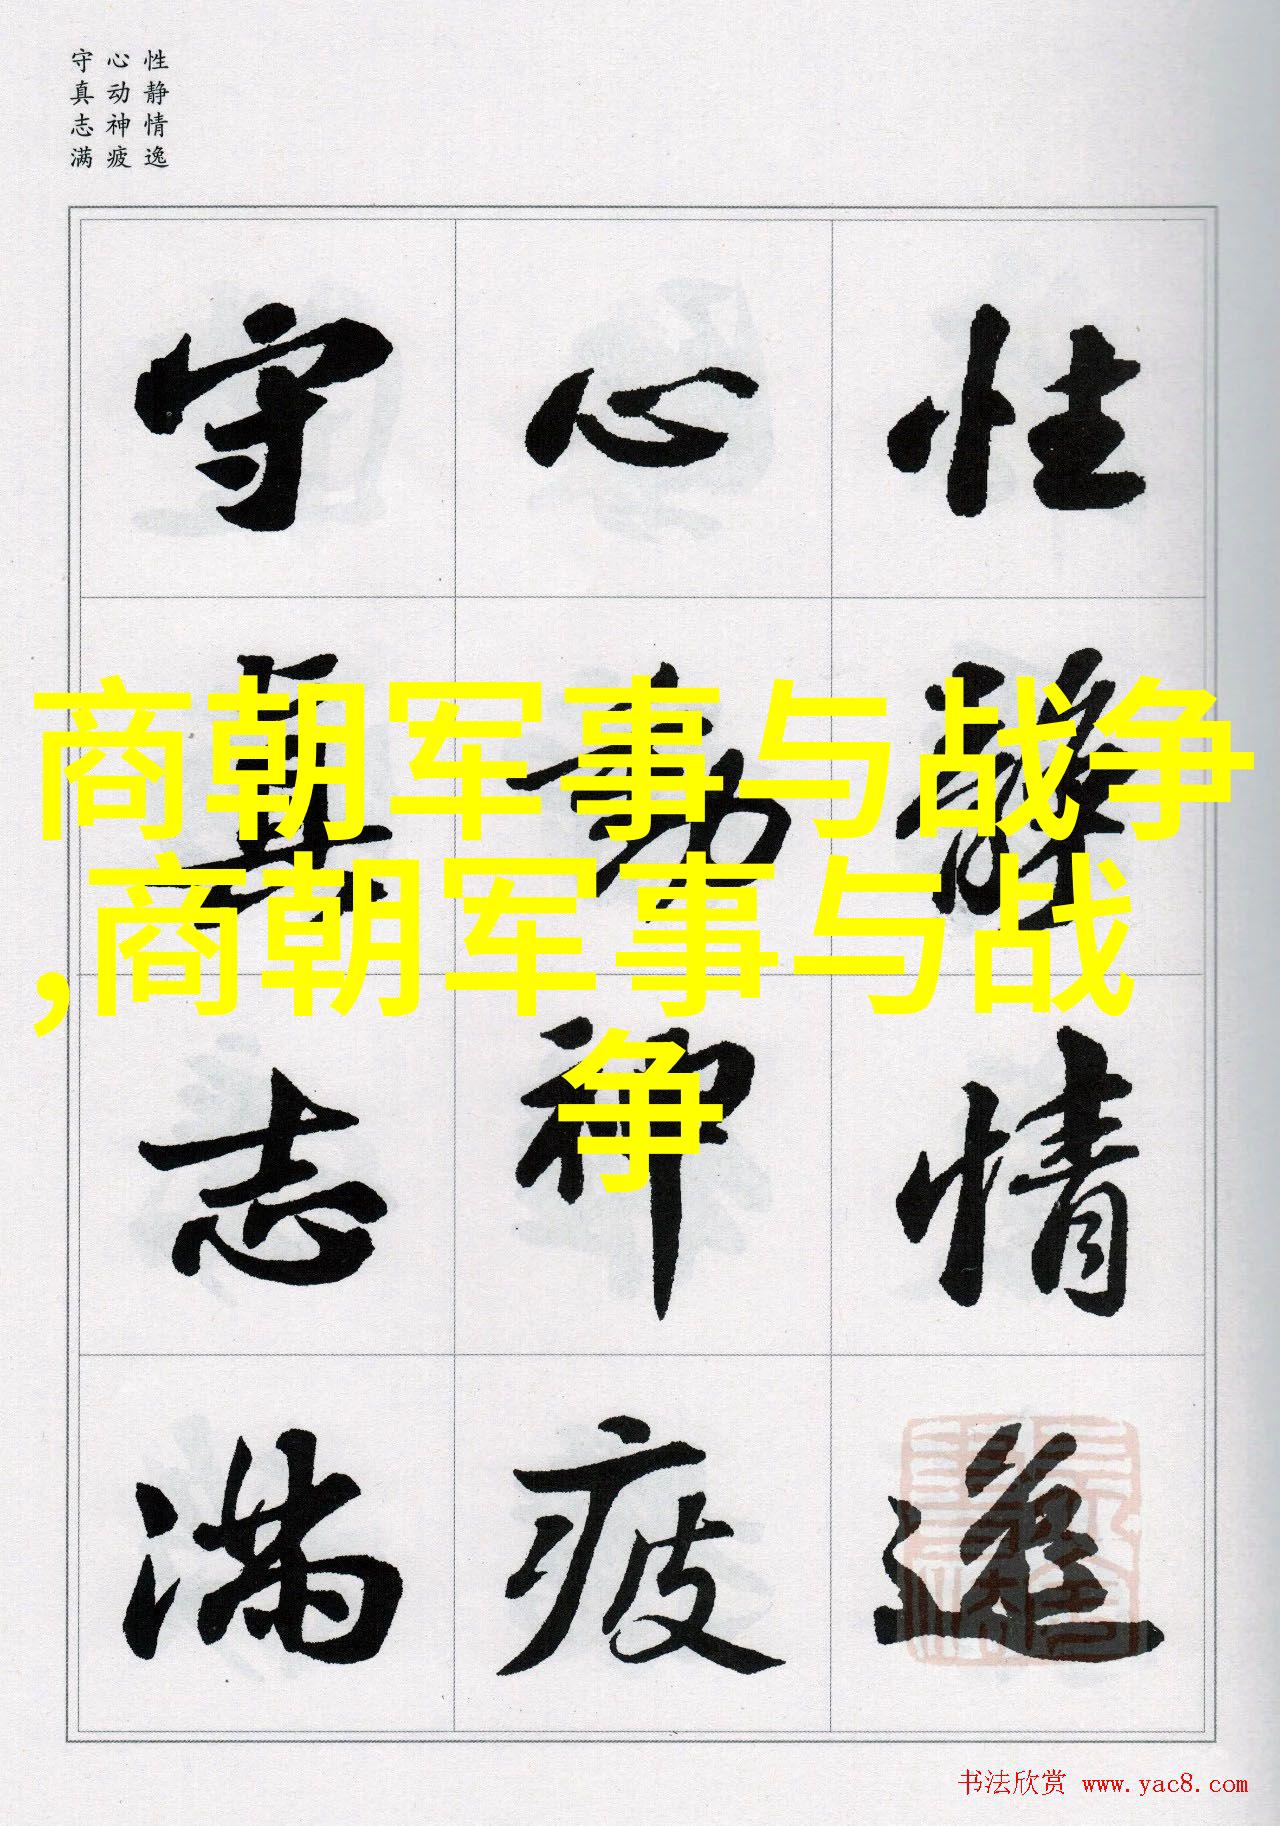 性静情逸
心动神疲
守真志满
性靜情逸
心動神疲
守真志满
商朝军事与战争
,商朝军事与战
争
书法欣赏 www.yac8.com